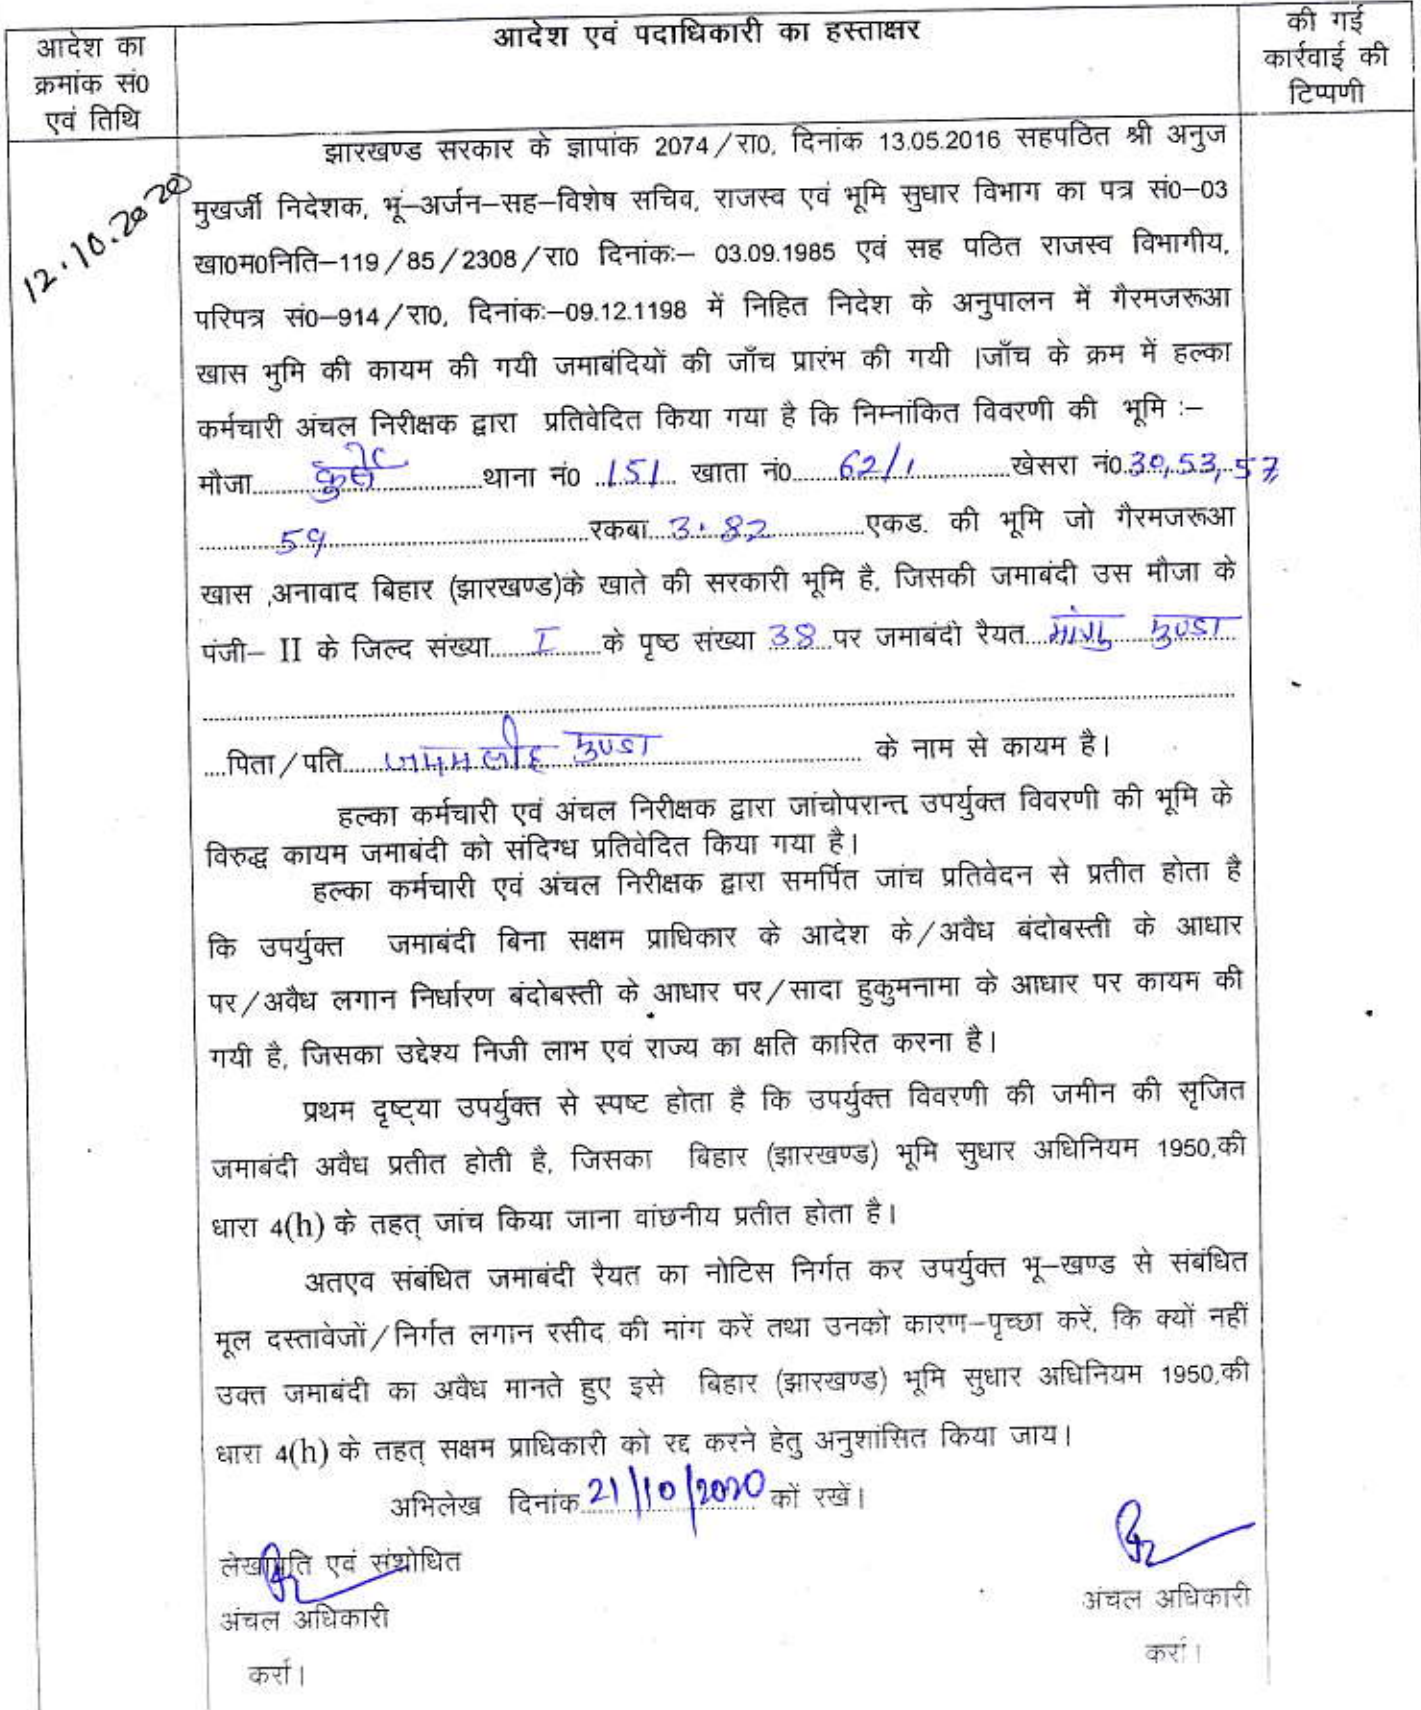 आदेश का
क्रमांक सं0
एवं तिथि
आदेश एवं पदाधिकारी का हस्ताक्षर
की गई
कार्रवाई की
टिप्पणी
12.10.2020
झारखण्ड सरकार के ज्ञापांक 2074/रा0, दिनांक 13.05.2016 सहपठित श्री अनुज
मुखर्जी निदेशक, भूं–अर्जन–सह–विशेष सचिव, राजस्व एवं भूमि सुधार विभाग का पत्र सं0–03
खा0म0निति–119/85/2308/रा0 दिनांकः– 03.09.1985 एवं सह पठित राजस्व विभागीय,
परिपत्र सं0–914/रा0, दिनांकः–09.12.1198 में निहित निदेश के अनुपालन में गैरमजरूआ
खास भुमि की कायम की गयी जमाबंदियों की जाँच प्रारंभ की गयी ।जाँच के क्रम में हल्का
कर्मचारी अंचल निरीक्षक द्वारा प्रतिवेदित किया गया है कि निम्नांकित विवरणी की भूमि :–
मौजा.................... थाना नं0 ..151... खाता नं0.......62/1...........खेसरा नं0.30,53,57,
...........59...........................रकबा...3.82...........एकड. की भूमि जो गैरमजरूआ
खास ,अनावाद बिहार (झारखण्ड)के खाते की सरकारी भूमि है, जिसकी जमाबंदी उस मौजा के
पंजी– II के जिल्द संख्या......I.......के पृष्ठ संख्या 38...पर जमाबंदी रैयत...मांगु मुण्डा
....पिता/पति.... मुण्डा ................ के नाम से कायम है।
हल्का कर्मचारी एवं अंचल निरीक्षक द्वारा जांचोपरान्त उपर्युक्त विवरणी की भूमि के
विरुद्ध कायम जमाबंदी को संदिग्ध प्रतिवेदित किया गया है।
हल्का कर्मचारी एवं अंचल निरीक्षक द्वारा समर्पित जांच प्रतिवेदन से प्रतीत होता है
कि उपर्युक्त जमाबंदी बिना सक्षम प्राधिकार के आदेश के/अवैध बंदोबस्ती के आधार
पर/अवैध लगान निर्धारण बंदोबस्ती के आधार पर/सादा हुकुमनामा के आधार पर कायम की
गयी है, जिसका उद्देश्य निजी लाभ एवं राज्य का क्षति कारित करना है।
प्रथम दृष्ट्या उपर्युक्त से स्पष्ट होता है कि उपर्युक्त विवरणी की जमीन की सृजित
जमाबंदी अवैध प्रतीत होती है, जिसका बिहार (झारखण्ड) भूमि सुधार अधिनियम 1950,की
धारा 4(h) के तहत् जांच किया जाना वांछनीय प्रतीत होता है।
अतएव संबंधित जमाबंदी रैयत का नोटिस निर्गत कर उपर्युक्त भू–खण्ड से संबंधित
मूल दस्तावेजों/निर्गत लगान रसीद की मांग करें तथा उनको कारण–पृच्छा करें, कि क्यों नहीं
उक्त जमाबंदी का अवैध मानते हुए इसे बिहार (झारखण्ड) भूमि सुधार अधिनियम 1950,की
धारा 4(h) के तहत् सक्षम प्राधिकारी को रद्द करने हेतु अनुशांसित किया जाय।
अभिलेख दिनांक 21/10/2020 कों रखें।
लेखापति एवं संशोधित
अंचल अधिकारी
कर्रा।
अंचल अधिकारी
कर्रा।